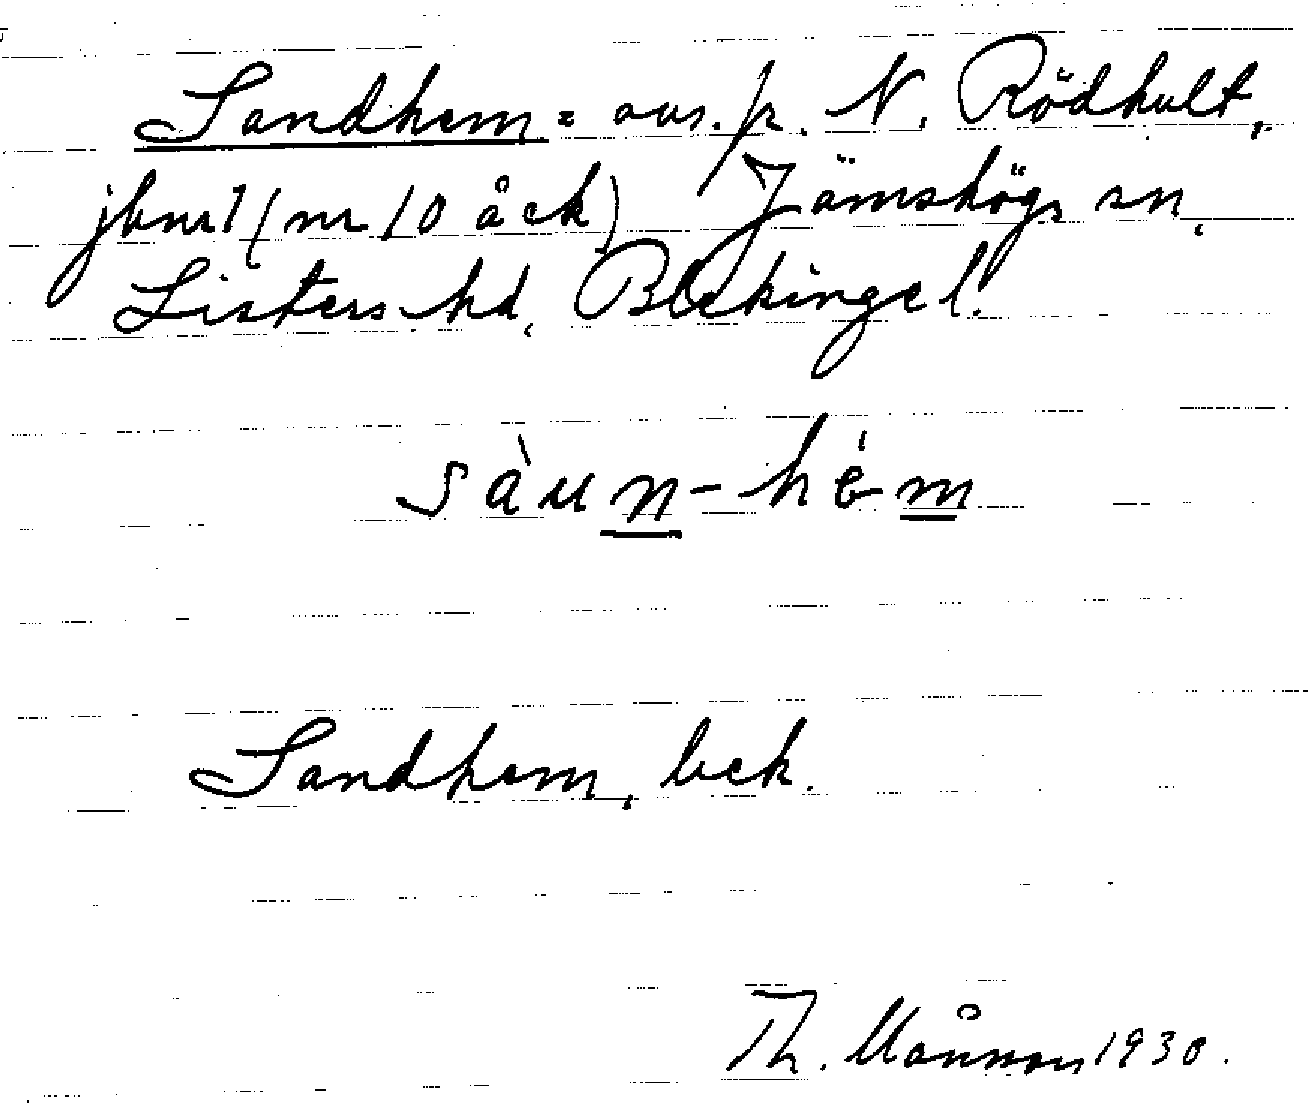 Sandhem = avs. fr. N. Rödhult,
jbnr 1 (nr 10 åck) Jämshögs sn,
Listers hd, Blekinge l.
sàun-hèm
Sandhem, bek.
Th. Månsson 1930.